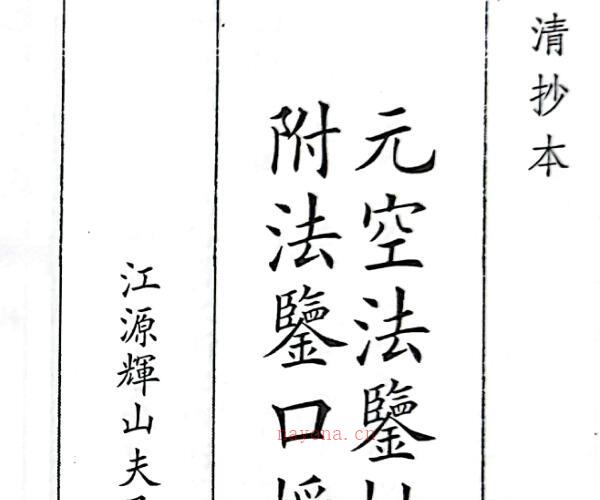 清抄本
元空法鑒
附法鑒口
江源輝山夫
nayona.cn